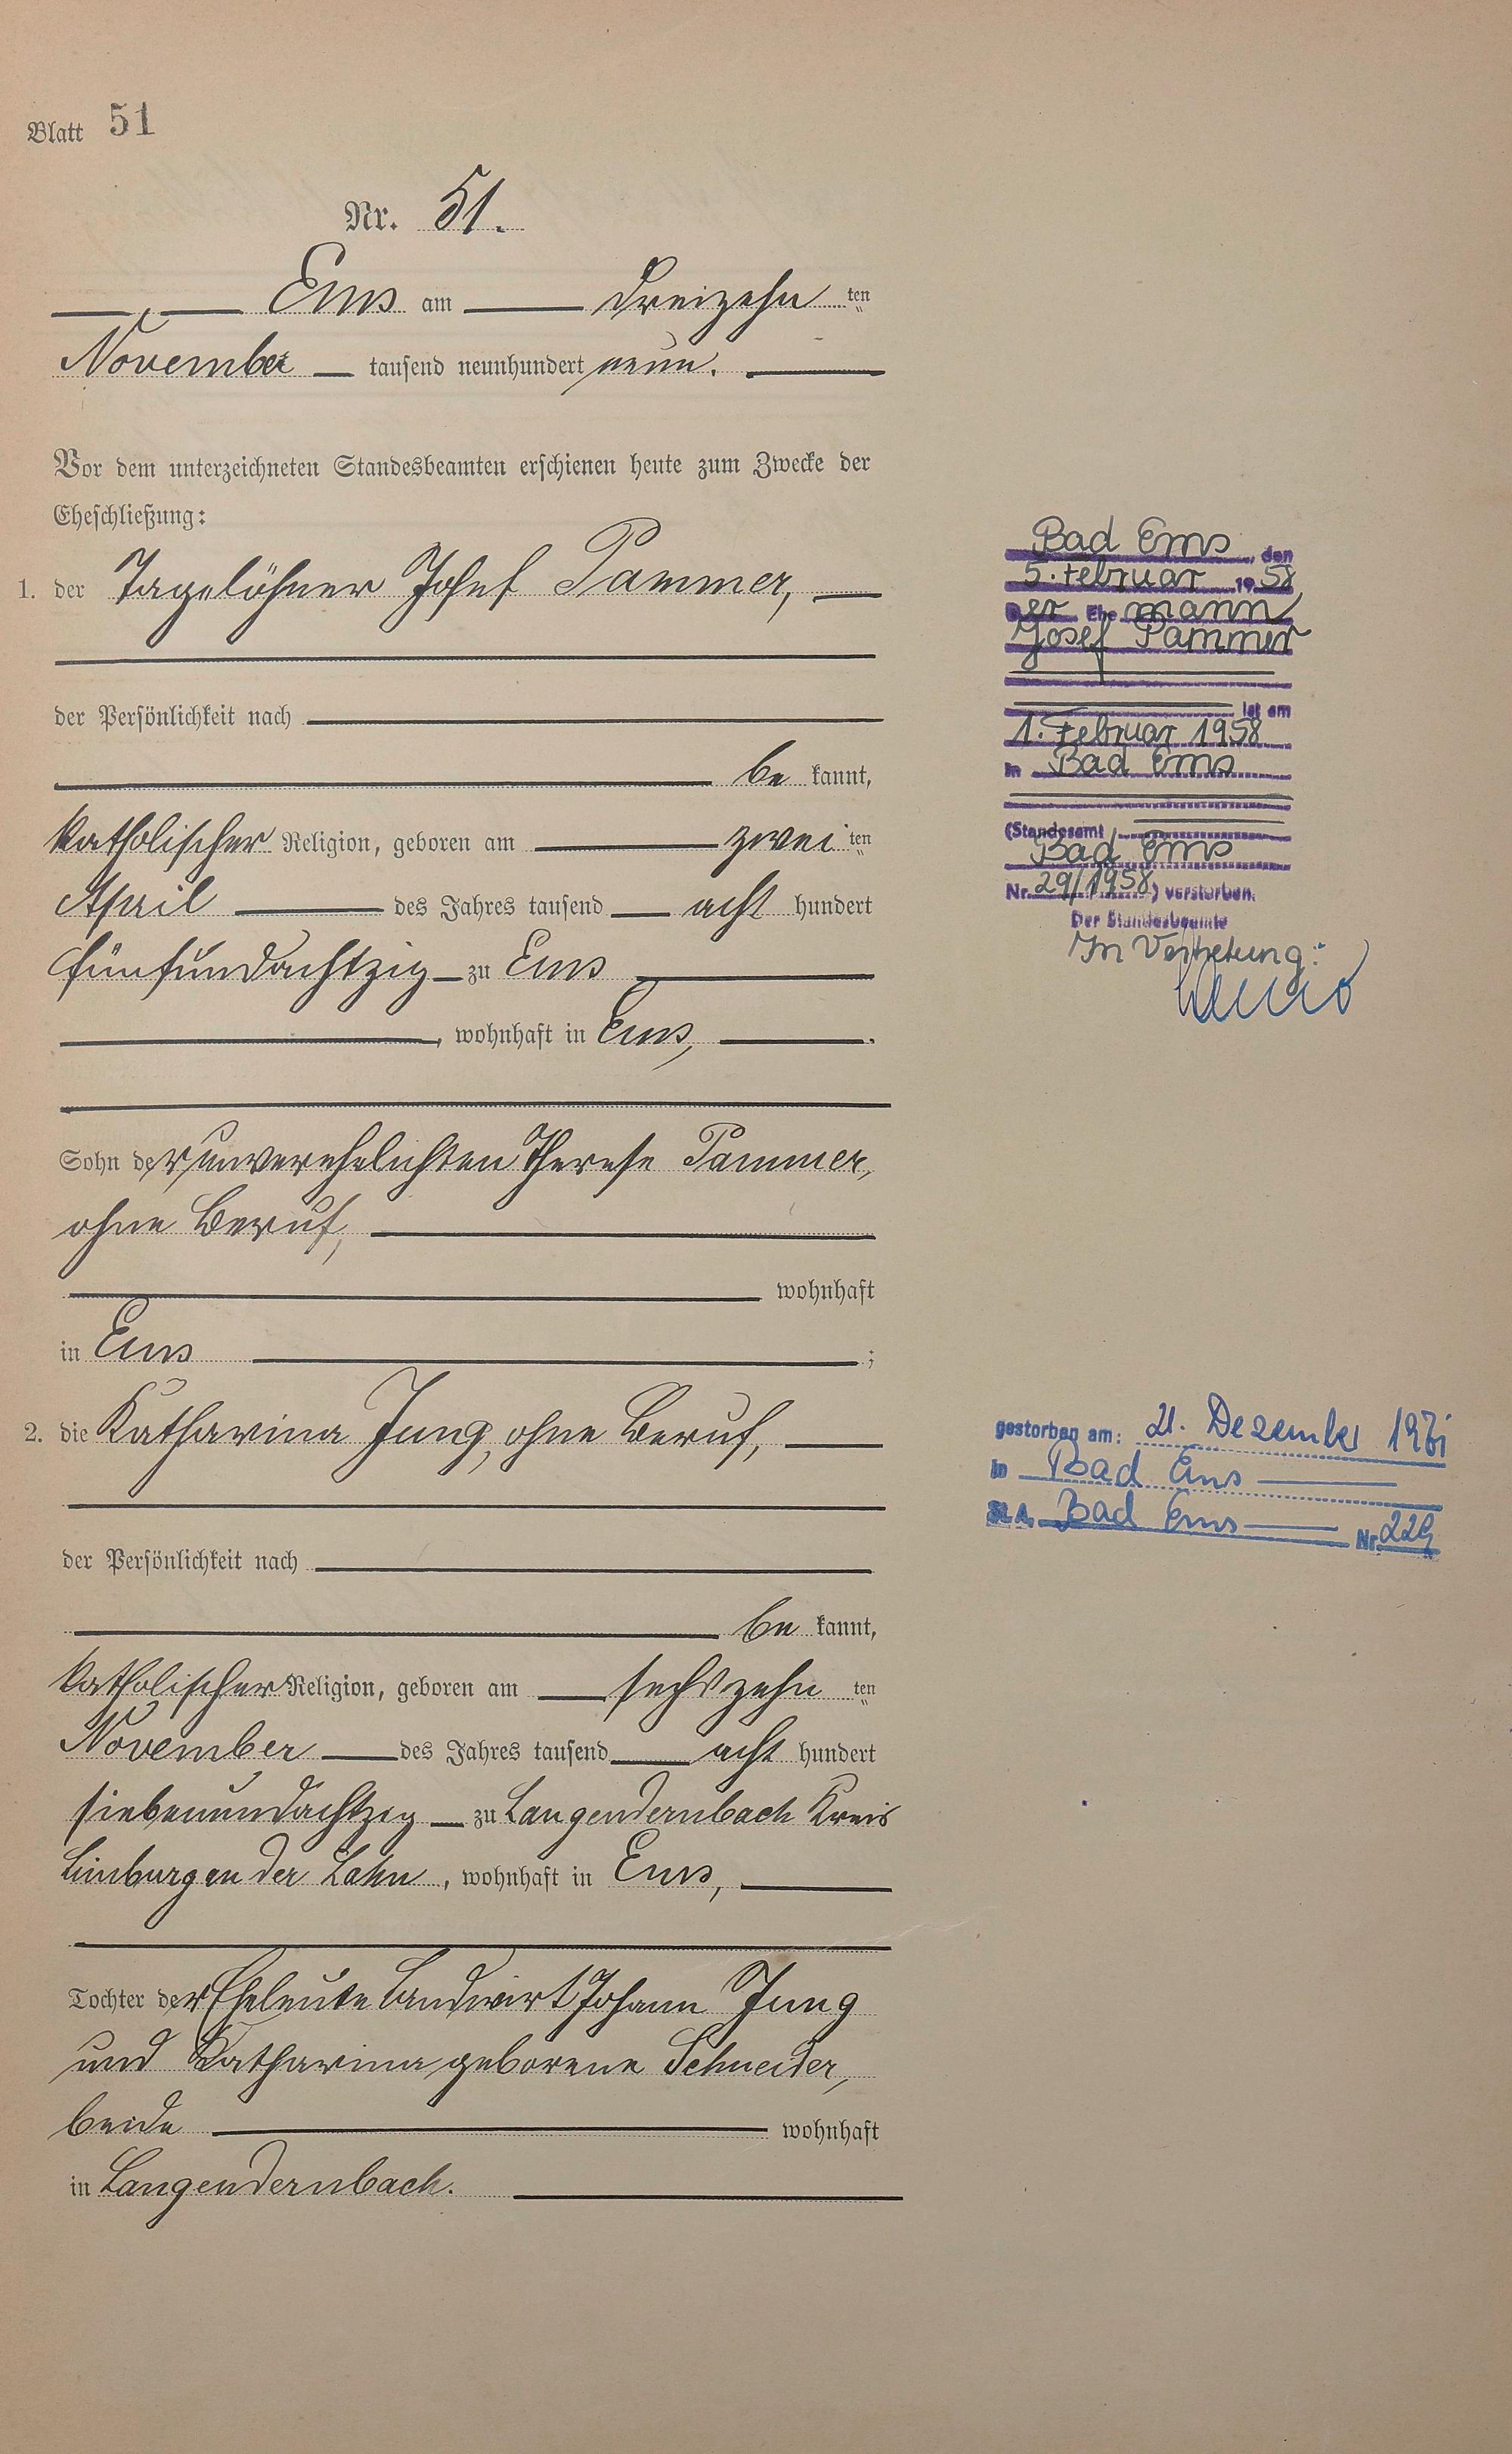 Blatt 51
Nr. 51.
Ems am dreizehn ten
November tausend neunhundert neun.
Vor dem unterzeichneten Standesbeamten erschienen heute zum Zwecke der
Eheschließung:
1. der Tagelöhner Josef Pammer,
der Persönlichkeit nach
be kannt,
katholischer Religion, geboren am zwei ten
April des Jahres tausend acht hundert
fünfundachtzig zu Ems
, wohnhaft in Ems,
Sohn der unverehelichten Therese Pammer,
ohne Beruf,
wohnhaft
in Ems ;
2. die Katharina Jung, ohne Beruf,
der Persönlichkeit nach
be kannt,
katholischer Religion, geboren am sechszehn ten
November des Jahres tausend acht hundert
siebenundachtzig zu Langendernbach Kreis
Limburg an der Lahn, wohnhaft in Ems,
Tochter der Eheleute Landwirt Johann Jung
und Katharina geborene Schneider,
beide wohnhaft
in Langendernbach.
Bad Ems, den
5. Februar 1958
Der Ehemann
Josef Pammer
ist am
1. Februar 1958
in Bad Ems
(Standesamt
Bad Ems
Nr. 29/1958) verstorben.
Der Standesbeamte
In Vertretung:
gestorben am: 21. Dezember
in Bad Ems
St. A. Bad Ems Nr. 229